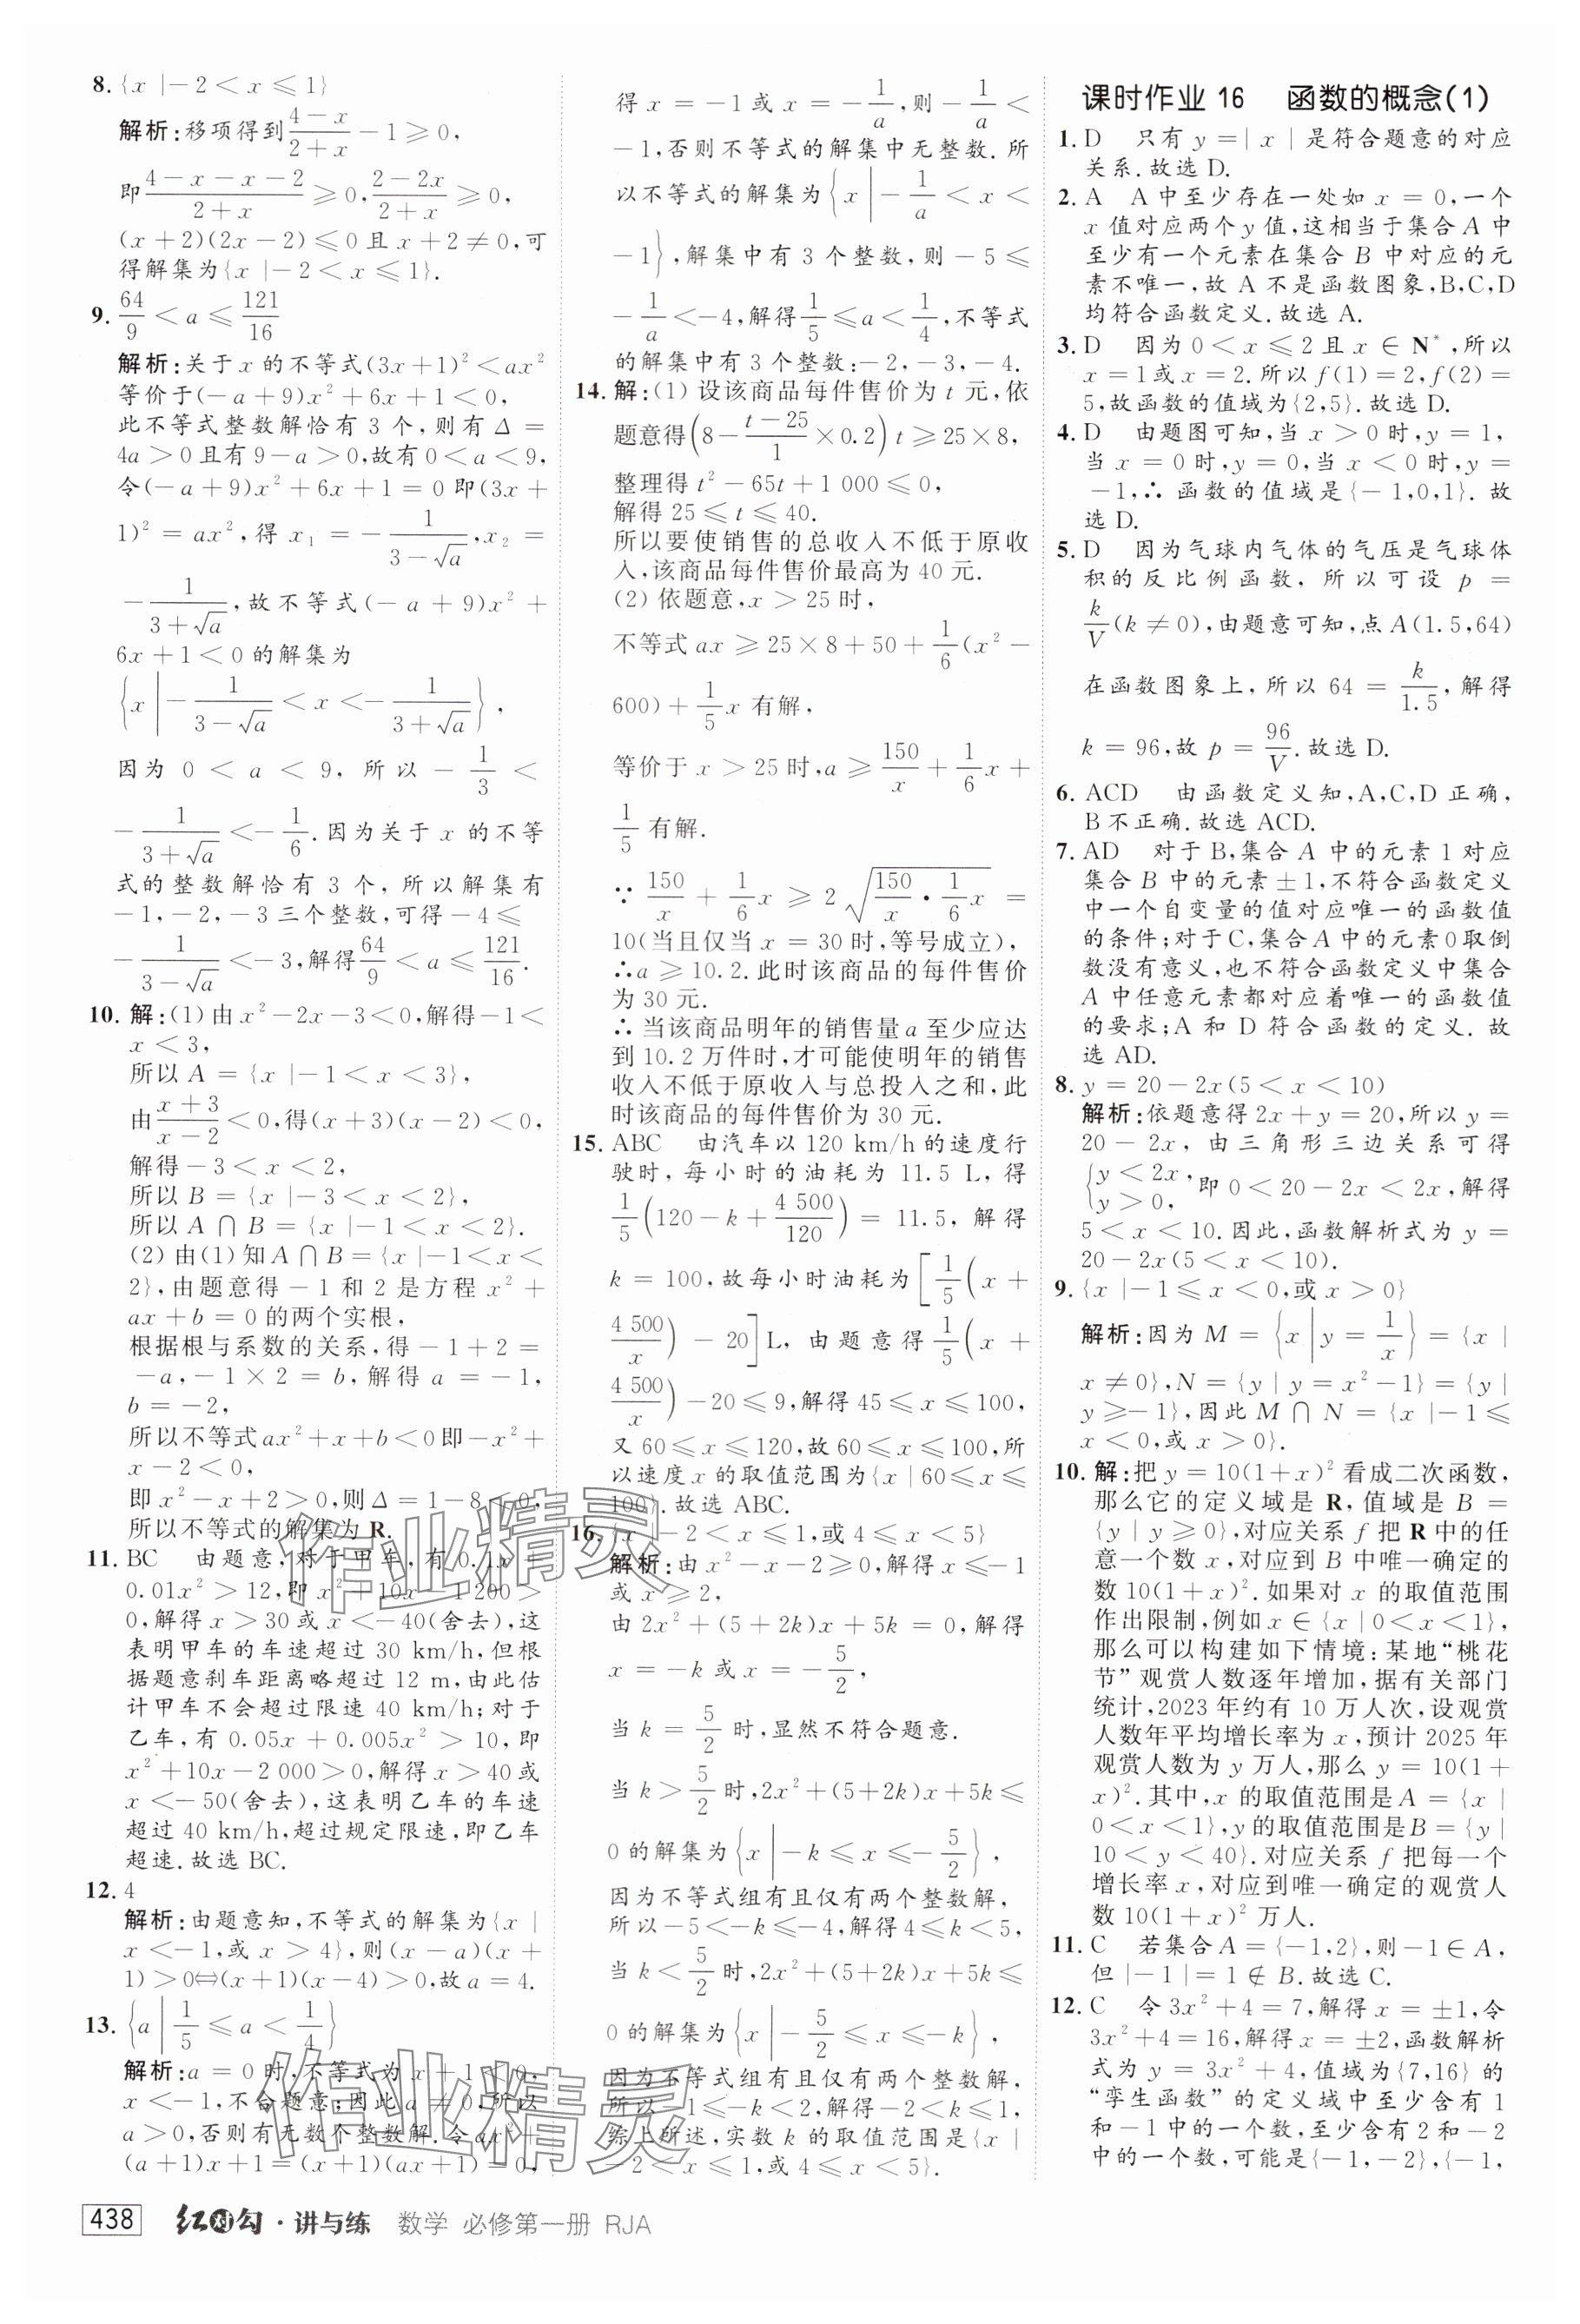 8. {x |-2<x≤1}
解析:移项得到(4-x)/(2+x)-1≥0,
即(4-x-x-2)/(2+x)≥0,(2-2x)/(2+x)≥0,
(x+2)(2x-2)≤0且x+2≠0,可
得解集为{x |-2<x≤1}.
9. 64/9<a≤121/16
解析:关于x的不等式(3x+1)²<ax²
等价于(-a+9)x²+6x+1<0,
此不等式整数解恰有3个,则有Δ=
4a>0且有9-a>0,故有0<a<9,
令(-a+9)x²+6x+1=0即(3x+
1)²=ax²,得x₁=-1/(3-√a),x₂=
-1/(3+√a),故不等式(-a+9)x²+
6x+1<0的解集为
{x |-1/(3-√a)<x<-1/(3+√a)},
因为0<a<9,所以-1/3<
-1/(3+√a)<-1/6.因为关于x的不等
式的整数解恰有3个,所以解集有
-1,-2,-3三个整数,可得-4≤
-1/(3-√a)<-3,解得64/9<a≤121/16.
10. 解:(1)由x²-2x-3<0,解得-1<
x<3,
所以A={x |-1<x<3},
由(x+3)/(x-2)<0,得(x+3)(x-2)<0,
解得-3<x<2,
所以B={x |-3<x<2},
所以A∩B={x |-1<x<2}.
(2)由(1)知A∩B={x |-1<x<
2},由题意得-1和2是方程x²+
ax+b=0的两个实根,
根据根与系数的关系,得-1+2=
-a,-1×2=b,解得a=-1,
b=-2,
所以不等式ax²+x+b<0即-x²+
x-2<0,
即x²-x+2>0,则Δ=1-8<0,
所以不等式的解集为R.
11. BC 由题意,对于甲车,有0.1x+
0.01x²>12,即x²+10x-1 200>
0,解得x>30或x<-40(舍去),这
表明甲车的车速超过30 km/h,但根
据题意刹车距离略超过12 m,由此估
计甲车不会超过限速40 km/h;对于
乙车,有0.05x+0.005x²>10,即
x²+10x-2 000>0,解得x>40或
x<-50(舍去),这表明乙车的车速
超过40 km/h,超过规定限速,即乙车
超速.故选BC.
12. 4
解析:由题意知,不等式的解集为{x |
x<-1,或x>4},则(x-a)(x+
1)>0⇔(x+1)(x-4)>0,故a=4.
13. {a |1/5≤a<1/4}
解析:a=0时,不等式为x+1<0,
x<-1,不合题意;因此a≠0,所以
a>0,否则有无数个整数解.令ax²+
(a+1)x+1=(x+1)(ax+1)=0,
得x=-1或x=-1/a,则-1/a<
-1,否则不等式的解集中无整数.所
以不等式的解集为{x |-1/a<x<
-1},解集中有3个整数,则-5≤
-1/a<-4,解得1/5≤a<1/4,不等式
的解集中有3个整数:-2,-3,-4.
14. 解:(1)设该商品每件售价为t元,依
题意得(8-(t-25)/1×0.2)t≥25×8,
整理得t²-65t+1 000≤0,
解得25≤t≤40.
所以要使销售的总收入不低于原收
入,该商品每件售价最高为40元.
(2)依题意,x>25时,
不等式ax≥25×8+50+1/6(x²-
600)+1/5x有解,
等价于x>25时,a≥150/x+1/6x+
1/5有解.
∵150/x+1/6x≥2√(150/x·1/6x)=
10(当且仅当x=30时,等号成立),
∴a≥10.2.此时该商品的每件售价
为30元.
∴当该商品明年的销售量a至少应达
到10.2万件时,才可能使明年的销售
收入不低于原收入与总投入之和,此
时该商品的每件售价为30元.
15. ABC 由汽车以120 km/h的速度行
驶时,每小时的油耗为11.5 L,得
1/5(120-k+4 500/120)=11.5,解得
k=100,故每小时油耗为[1/5(x+
4 500/x)-20]L,由题意得1/5(x+
4 500/x)-20≤9,解得45≤x≤100,
又60≤x≤120,故60≤x≤100,所
以速度x的取值范围为{x |60≤x≤
100}.故选ABC.
16. {x |-2<x≤1,或4≤x<5}
解析:由x²-x-2≥0,解得x≤-1
或x≥2,
由2x²+(5+2k)x+5k=0,解得
x=-k或x=-5/2,
当k=5/2时,显然不符合题意.
当k>5/2时,2x²+(5+2k)x+5k≤
0的解集为{x |-k≤x≤-5/2},
因为不等式组有且仅有两个整数解,
所以-5<-k≤-4,解得4≤k<5,
当k<5/2时,2x²+(5+2k)x+5k≤
0的解集为{x |-5/2≤x≤-k},
因为不等式组有且仅有两个整数解,
所以-1≤-k<2,解得-2<k≤1,
综上所述,实数k的取值范围是{x |
-2<x≤1,或4≤x<5}.
课时作业16 函数的概念(1)
1. D 只有y=| x |是符合题意的对应
关系.故选D.
2. A A中至少存在一处如x=0,一个
x值对应两个y值,这相当于集合A中
至少有一个元素在集合B中对应的元
素不唯一,故A不是函数图象,B,C,D
均符合函数定义.故选A.
3. D 因为0<x≤2且x∈N*,所以
x=1或x=2.所以f(1)=2,f(2)=
5,故函数的值域为{2,5}.故选D.
4. D 由题图可知,当x>0时,y=1,
当x=0时,y=0,当x<0时,y=
-1,∴函数的值域是{-1,0,1}.故
选D.
5. D 因为气球内气体的气压是气球体
积的反比例函数,所以可设p=
k/V(k≠0),由题意可知,点A(1.5,64)
在函数图象上,所以64=k/1.5,解得
k=96,故p=96/V.故选D.
6. ACD 由函数定义知,A,C,D正确,
B不正确.故选ACD.
7. AD 对于B,集合A中的元素1对应
集合B中的元素±1,不符合函数定义
中一个自变量的值对应唯一的函数值
的条件;对于C,集合A中的元素0取倒
数没有意义,也不符合函数定义中集合
A中任意元素都对应着唯一的函数值
的要求;A和D符合函数的定义.故
选AD.
8. y=20-2x(5<x<10)
解析:依题意得2x+y=20,所以y=
20-2x,由三角形三边关系可得
{y<2x, y>0,即0<20-2x<2x,解得
5<x<10.因此,函数解析式为y=
20-2x(5<x<10).
9. {x |-1≤x<0,或x>0}
解析:因为M={x |y=1/x}={x |
x≠0},N={y | y=x²-1}={y |
y≥-1},因此M∩N={x |-1≤
x<0,或x>0}.
10. 解:把y=10(1+x)²看成二次函数,
那么它的定义域是R,值域是B=
{y | y≥0},对应关系f把R中的任
意一个数x,对应到B中唯一确定的
数10(1+x)².如果对x的取值范围
作出限制,例如x∈{x | 0<x<1},
那么可以构建如下情境:某地“桃花
节”观赏人数逐年增加,据有关部门
统计,2023年约有10万人次,设观赏
人数年平均增长率为x,预计2025年
观赏人数为y万人,那么y=10(1+
x)².其中,x的取值范围是A={x |
0<x<1},y的取值范围是B={y |
10<y<40}.对应关系f把每一个
增长率x,对应到唯一确定的观赏人
数10(1+x)²万人.
11. C 若集合A={-1,2},则-1∈A,
但|-1|=1∉B.故选C.
12. C 令3x²+4=7,解得x=±1,令
3x²+4=16,解得x=±2,函数解析
式为y=3x²+4,值域为{7,16}的
“孪生函数”的定义域中至少含有1
和-1中的一个数,至少含有2和-2
中的一个数,可能是{-1,-2},{-1,
438 红对勾·讲与练 数学 必修第一册 RJA
作业精灵
作业精灵